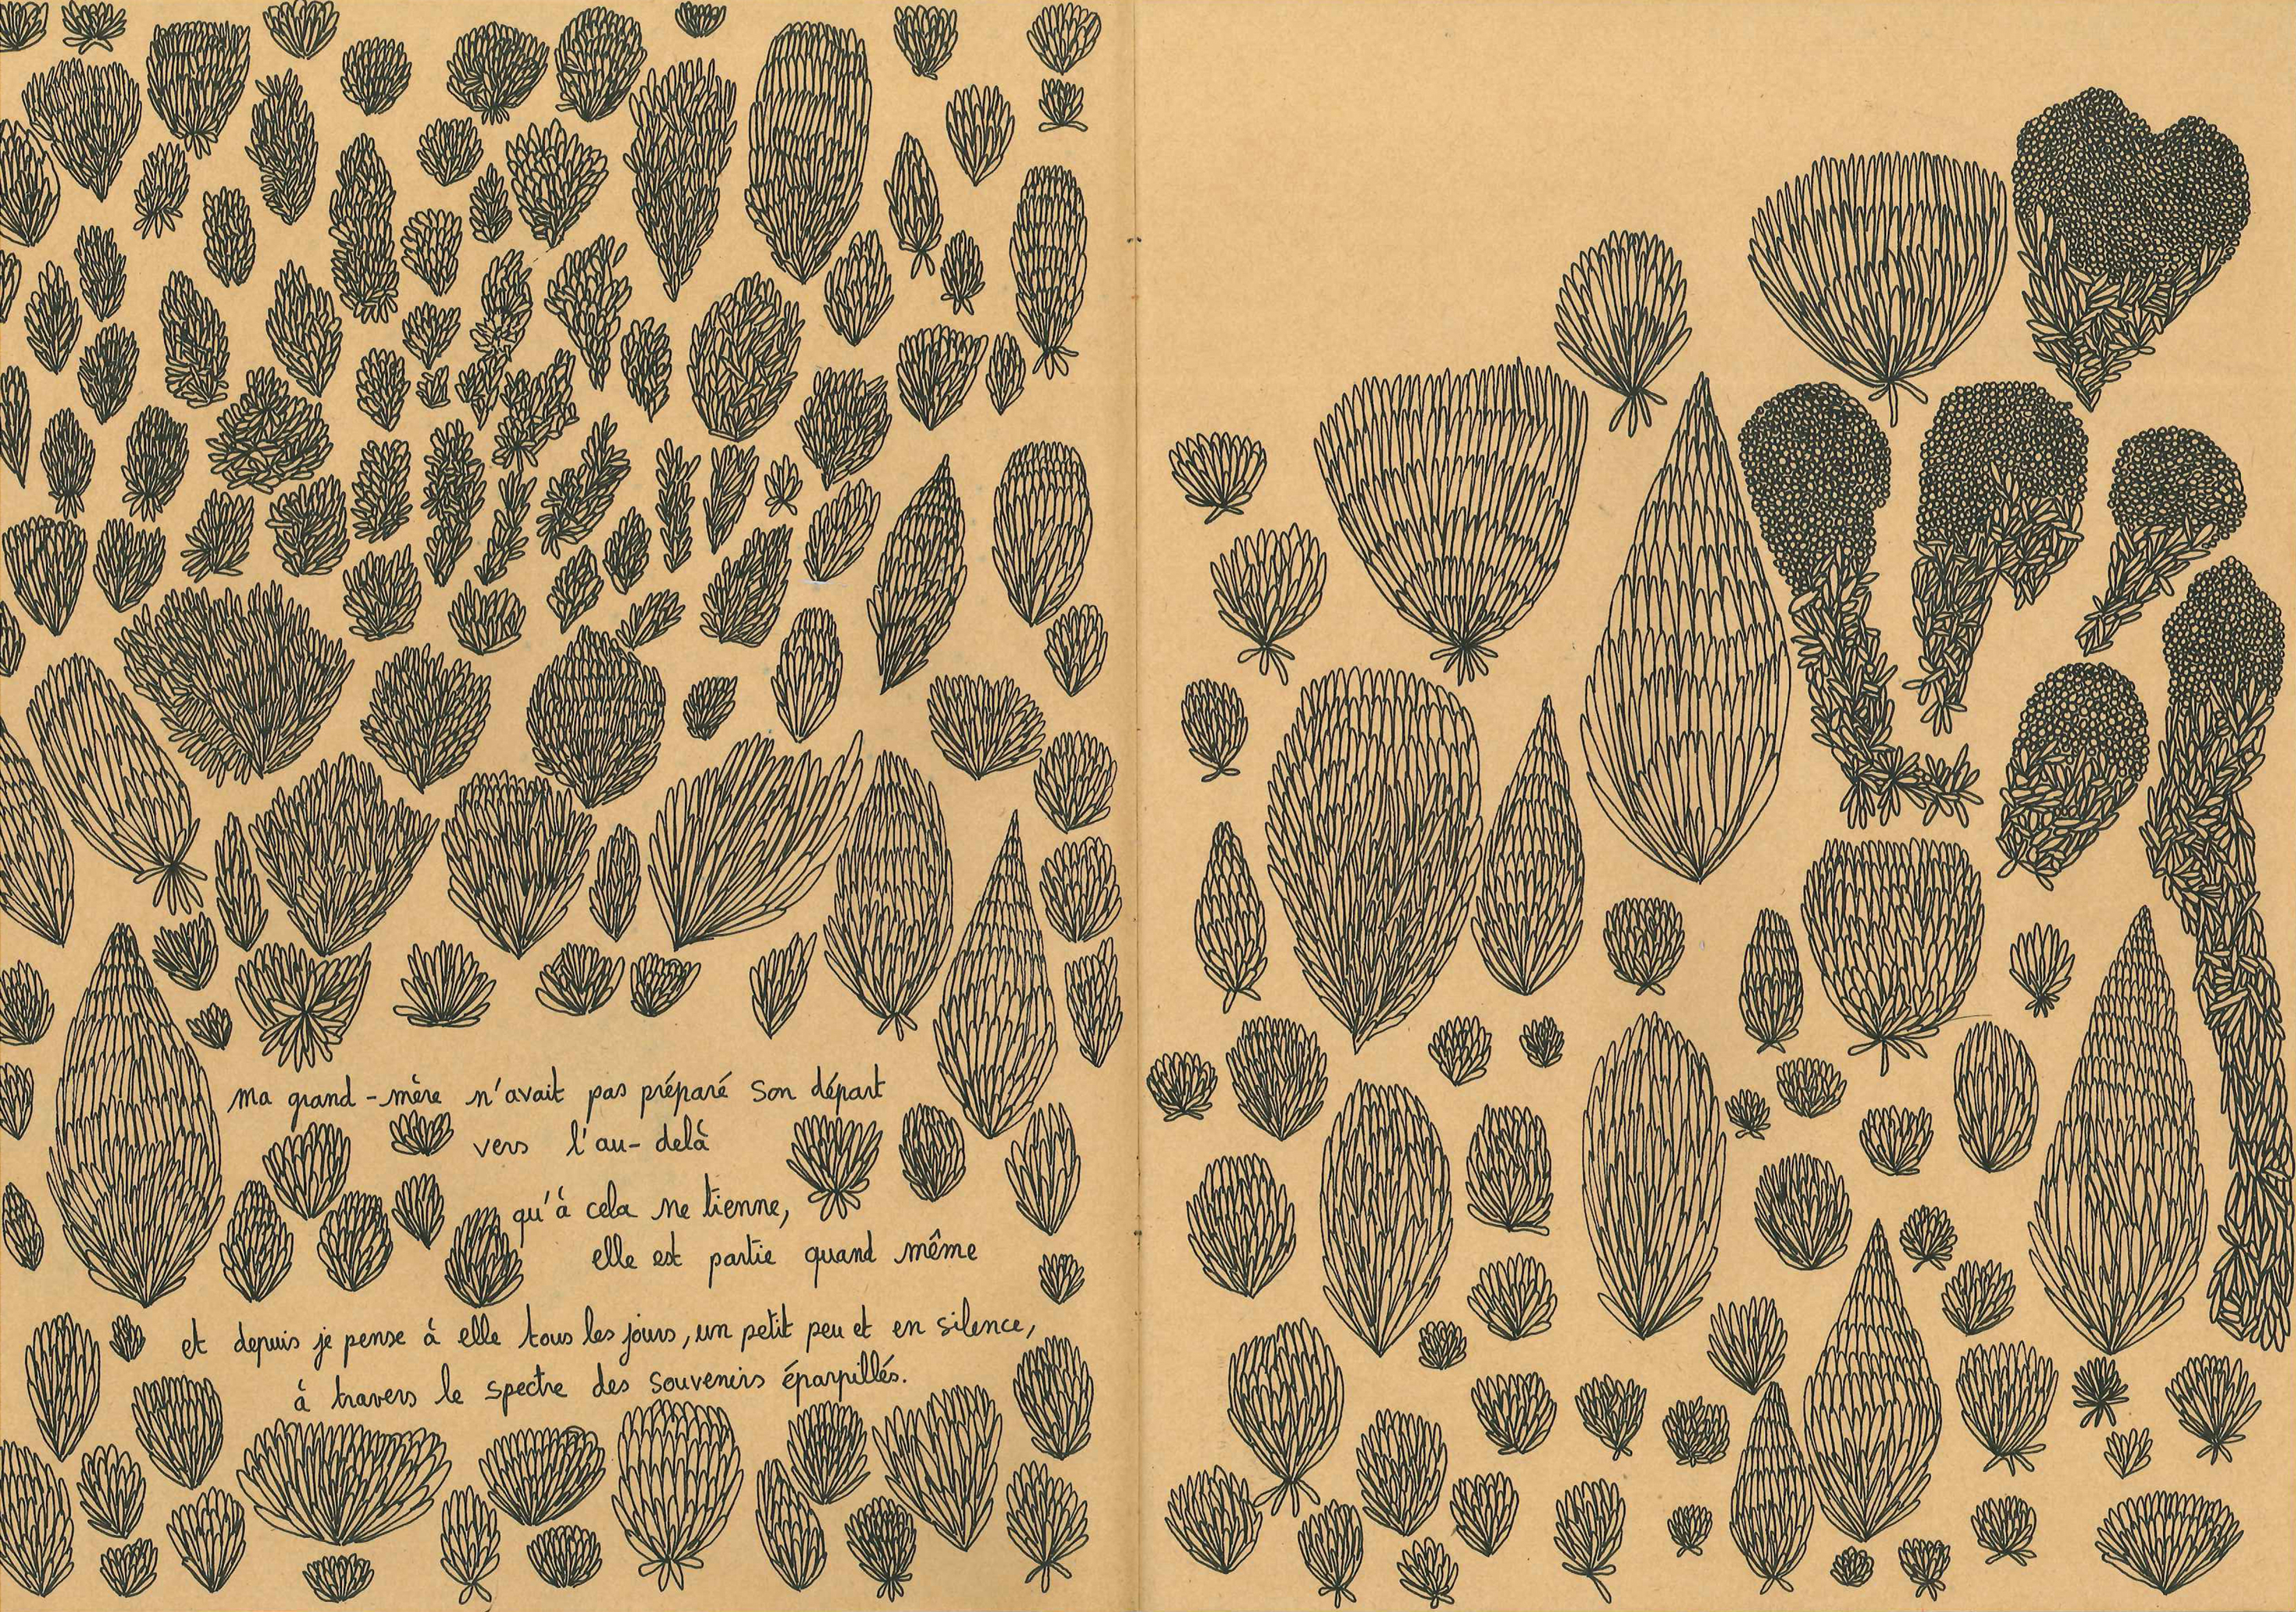 ma grand-mère n'avait pas préparé son départ
vers l'au-delà
qu'à cela ne tienne,
elle est partie quand même
et depuis je pense à elle tous les jours, un petit peu et en silence,
à travers le spectre des souvenirs éparpillés.